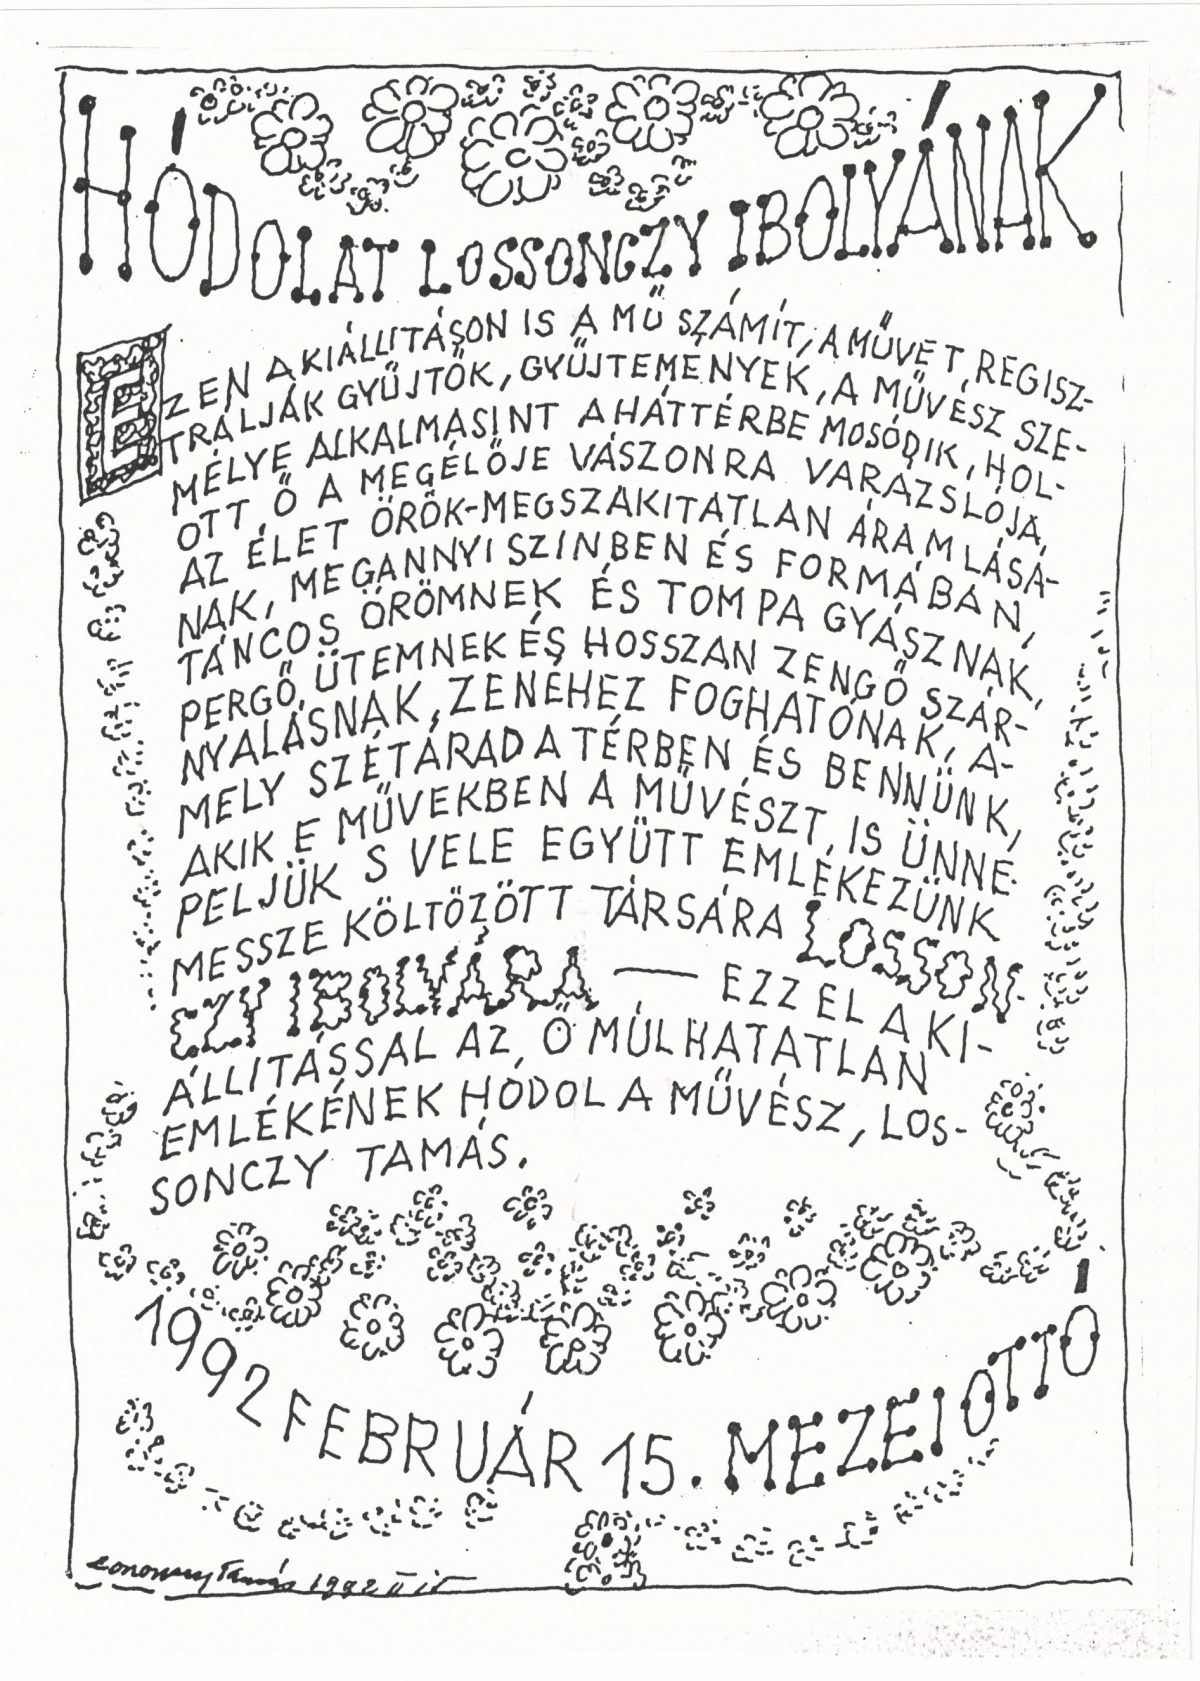 HÓDOLAT LOSSONCZY IBOLYÁNAK
EZEN A KIÁLLITÁSON IS A MŰ SZÁMÍT, A MŰVET REGISZ-
TRÁLJÁK GYŰJTŐK, GYŰJTEMÉNYEK, A MŰVÉSZ SZE-
MÉLYE ALKALMASINT A HÁTTÉRBE MOSÓDIK, HOL-
OTT Ő A MEGÉLŐJE VÁSZONRA VARÁZSLÓJA,
AZ ÉLET ÖRÖK-MEGSZAKITATLAN ÁRAMLÁSÁ-
NAK, MEGANNYI SZINBEN ÉS FORMÁBAN,
TÁNCOS ÖRÖMNEK ÉS TOMPA GYÁSZNAK,
PERGŐ ÜTEMNEK ÉS HOSSZAN ZENGŐ SZÁR-
NYALÁSNAK, ZENEHEZ FOGHATÓNAK, A-
MELY SZÉTÁRAD A TÉRBEN ÉS BENNÜNK,
AKIK E MŰVEKBEN A MŰVÉSZT IS ÜNNE-
PELJÜK S VELE EGYÜTT EMLÉKEZÜNK
MESSZE KÖLTÖZÖTT TÁRSÁRA LOSSON-
CZY IBOLYÁRA — EZZEL A KI-
ÁLLITÁSSAL AZ Ő MÚLHATATLAN
EMLÉKÉNEK HÓDOL A MŰVÉSZ, LOS-
SONCZY TAMÁS.
1992 FEBRUÁR 15. MEZEI OTTÓ
Lossonczy Tamás 1992 II 15